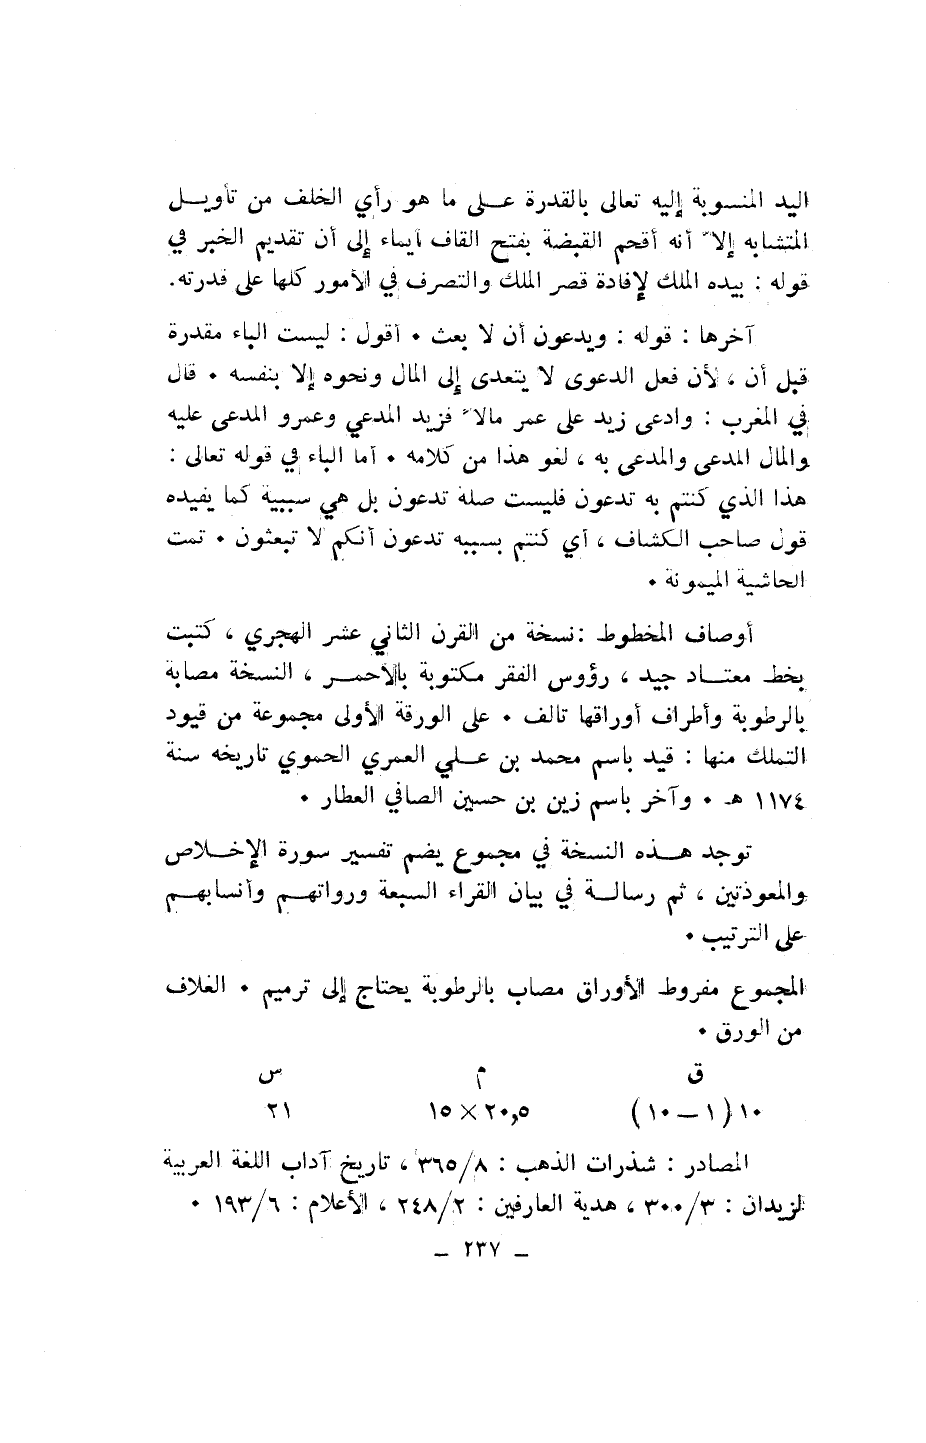 اليد المنسوبة إليه تعالى بالقدرة عـلـى ما هو رأي الخلف من تأويـل
المتشابه إلا ّ أنه أقحم القبضة بفتح القاف أيماء إلى أن تقديم الخبر في
قوله : بيده الملك لإفادة قصر الملك والتصرف في الأمور كلها على قدرته.
آخرها : قوله : ويدعون أن لا بعث ٠ أقول : ليست الباء مقدرة
قبل أن ، لأن فعل الدعوى لا يتعدى إلى المال ونحوه إلا بنفسه ٠ قال
في المغرب : وادعى زيد على عمر مالا ً فزيد المدعي وعمرو المدعى عليه
والمال المدعى والمدعى به ، لغو هذا من كلامه ٠ أما الباء في قوله تعالى :
هذا الذي كنتم به تدعون فليست صلة تدعون بل هي سببية كما يفيده
قول صاحب الكشاف ، أي كنتم بسببه تدعون أنكم لا تبعثون ٠ تمت
الحاشية الميمونة ٠
أوصاف المخطوط : نسخة من القرن الثاني عشر الهجري ، كتبت
بخط معتـاد جيد ، رؤوس الفقر مكتوبة بالأحمـر ، النسخة مصابة
بالرطوبة وأطراف أوراقها تالف ٠ على الورقة الأولى مجموعة من قيود
التملك منها : قيد باسم محمد بن عـلـي العمري الحموي تاريخه سنة
١١٧٤ هـ ٠ وآخر باسم زين بن حسين الصافي العطار ٠
توجد هـذه النسخة في مجموع يضم تفسير سورة الإخـلاص
والمعوذتين ، ثم رسالـة في بيان القراء السبعة ورواتهـم وأنسابهـم
على الترتيب ٠
المجموع مفروط الأوراق مصاب بالرطوبة يحتاج إلى ترميم ٠ الغلاف
من الورق ٠
ق م س
١٠ (١ – ١٠) ٢٠,٥ × ١٥ ٢١
المصادر : شذرات الذهب : ٣٦٥/٨ ، تاريخ آداب اللغة العربية
لزيدان : ٣٠٠/٣ ، هدية العارفين : ٢٤٨/٢ ، الأعلام : ١٩٣/٦ ٠
– ٢٣٧ –